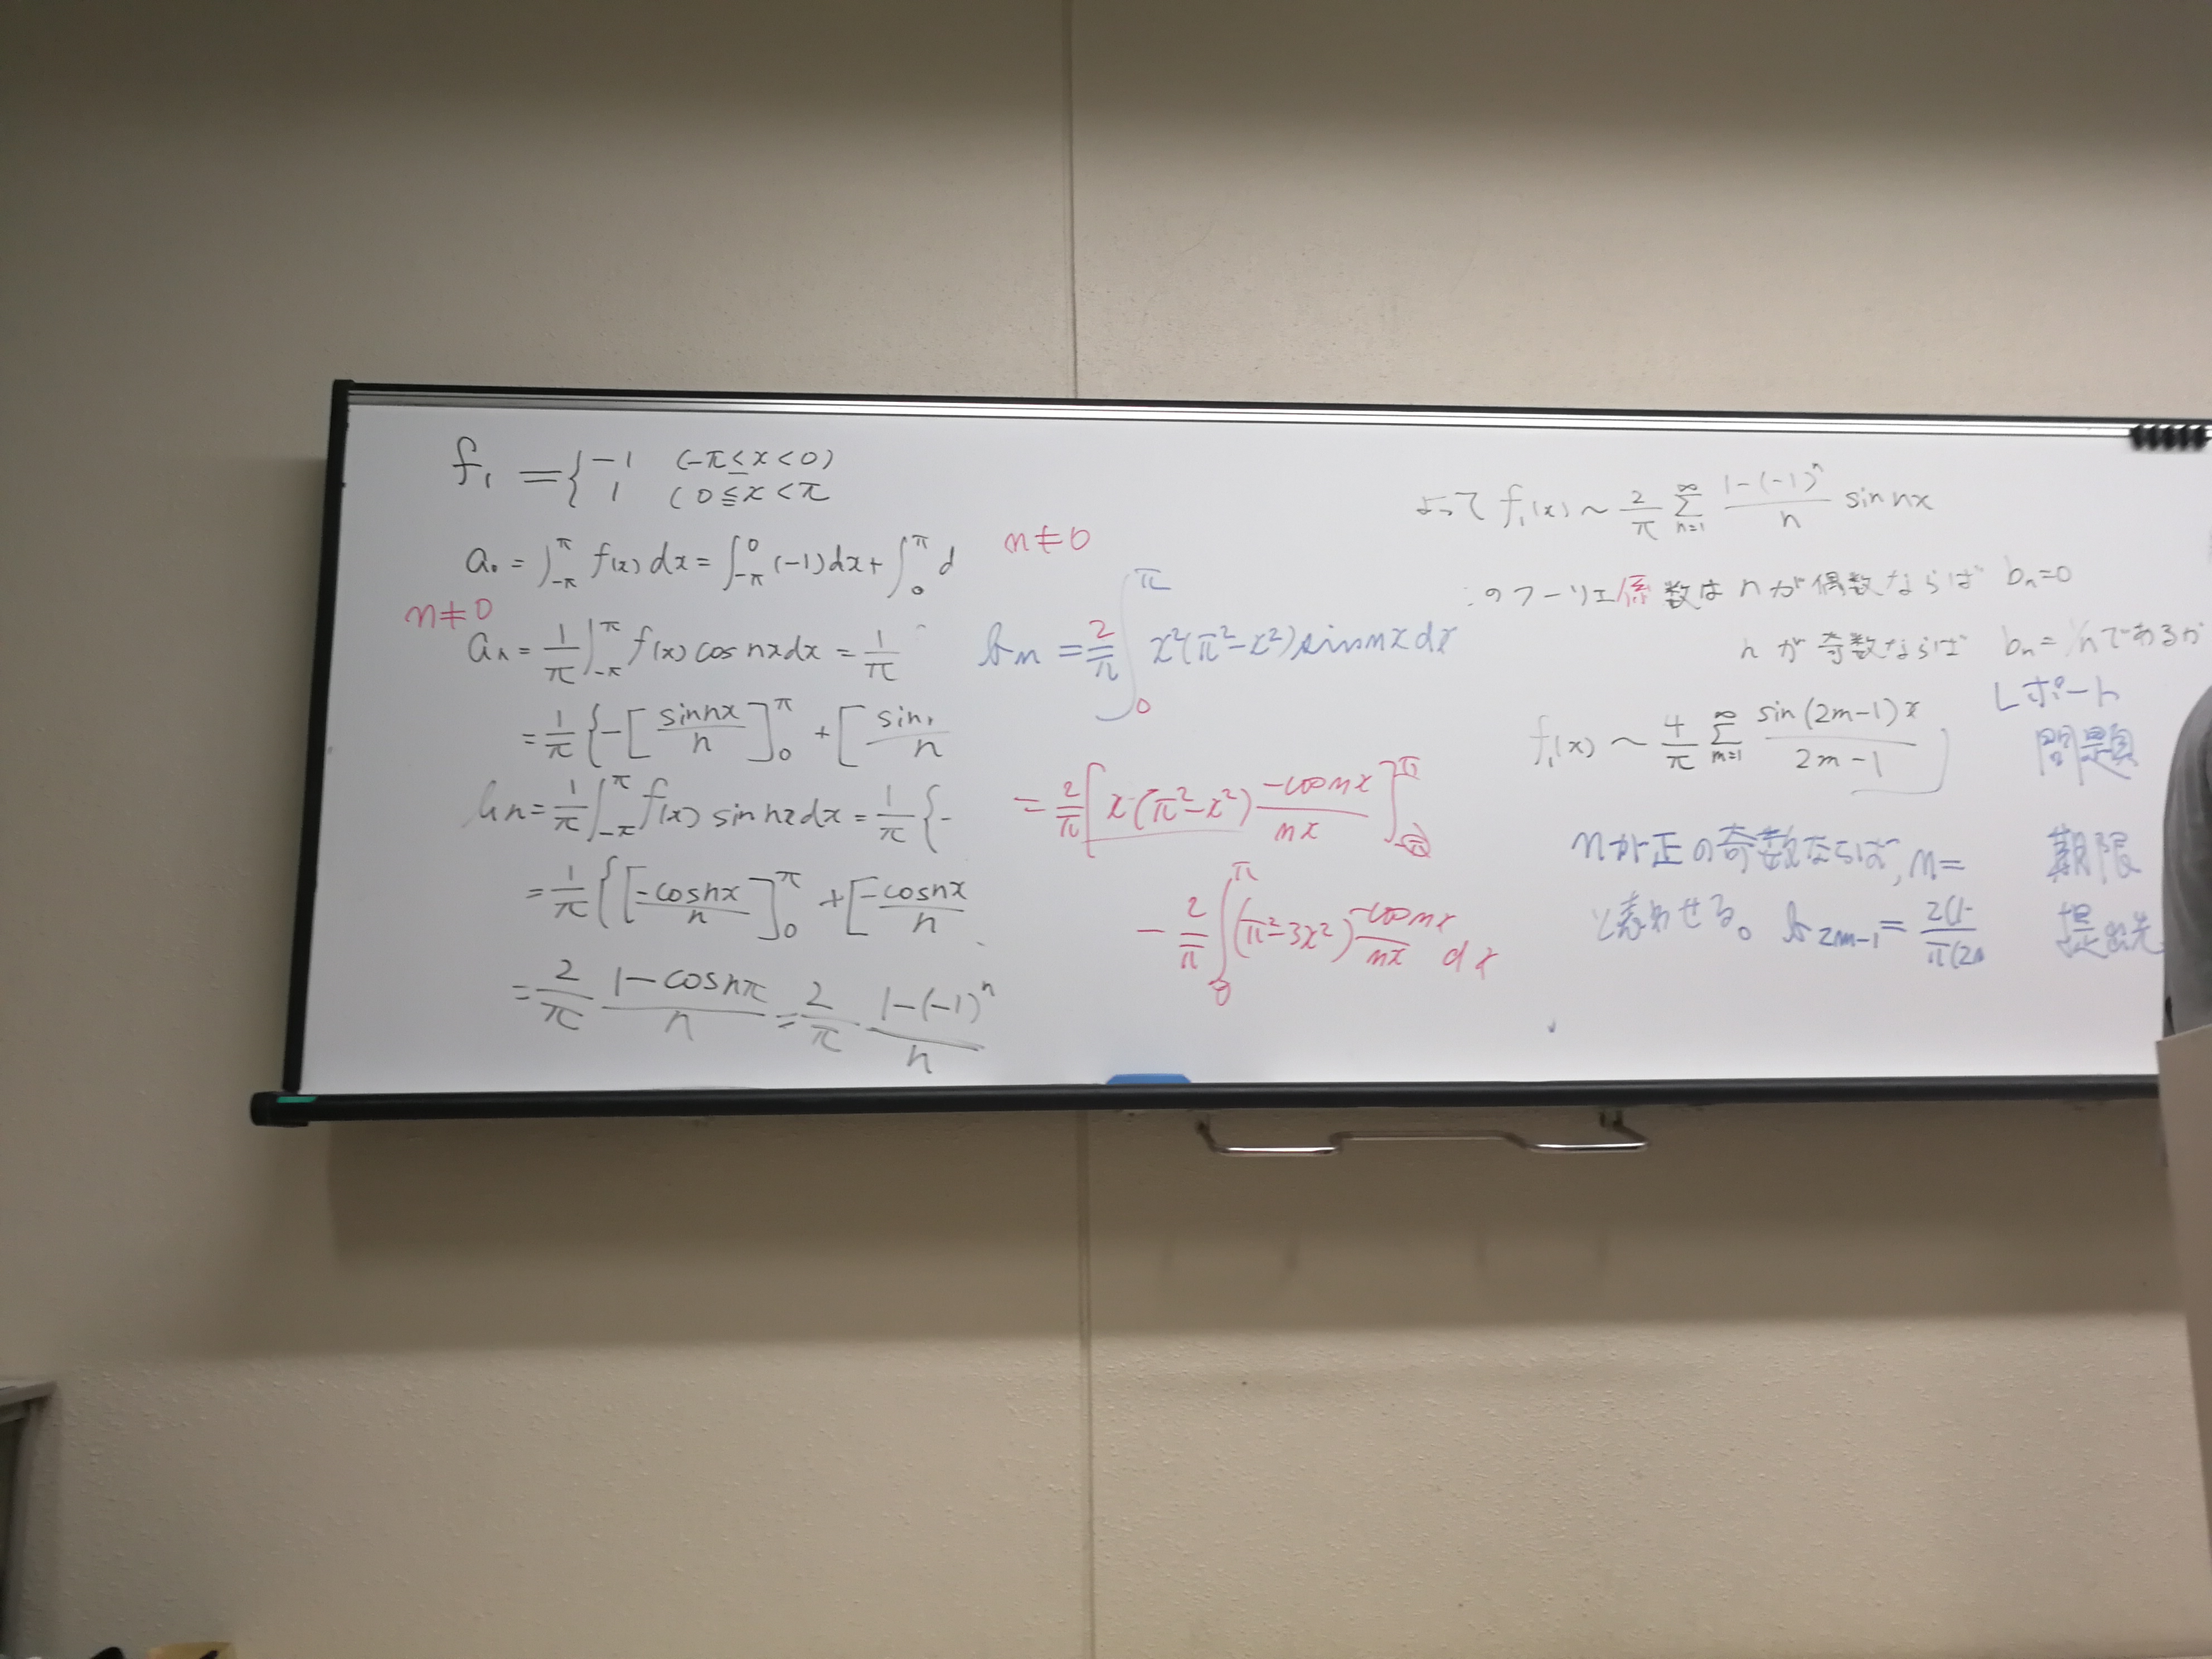 f₁ = { -1 (-π ≤ x < 0)
1 (0 ≦ x < π
a₀ = ∫_{-π}^{π} f(x) dx = ∫_{-π}^{0} (-1) dx + ∫_{0}^{π} d
n ≠ 0
aₙ = 1/π ∫_{-π}^{π} f(x) cos nx dx = 1/π
= 1/π { -[ sin nx / n ]_{0}^{π} + [ sin / n
bₙ = 1/π ∫_{-π}^{π} f(x) sin nx dx = 1/π { -
= 1/π { [ -cos nx / n ]_{0}^{π} + [ -cos nx / n
= 2/π (1 - cos nπ)/n = 2/π (1-(-1)ⁿ)/n
n ≠ 0
bₙ = 2/π ∫_{0}^{π} x²(π²-x²) sin nx dx
= 2/π [ x(π²-x²) -cos nx / nx ]^{π}
- 2/π ∫_{0}^{π} (π²-3x²) -cos nx / nx dx
よって f₁(x) ~ 2/π Σ_{n=1}^{∞} (1-(-1)ⁿ)/n sin nx
このフーリエ係数は n が偶数ならば bₙ=0
n が奇数ならば bₙ= /n であるか
f₁(x) ~ 4/π Σ_{m=1}^{∞} sin(2m-1)x / (2m-1)
nが正の奇数ならば, n=
と表わせる。 b_{2m-1} = 2(1- / π(2
レポート
問題
期限
提出先